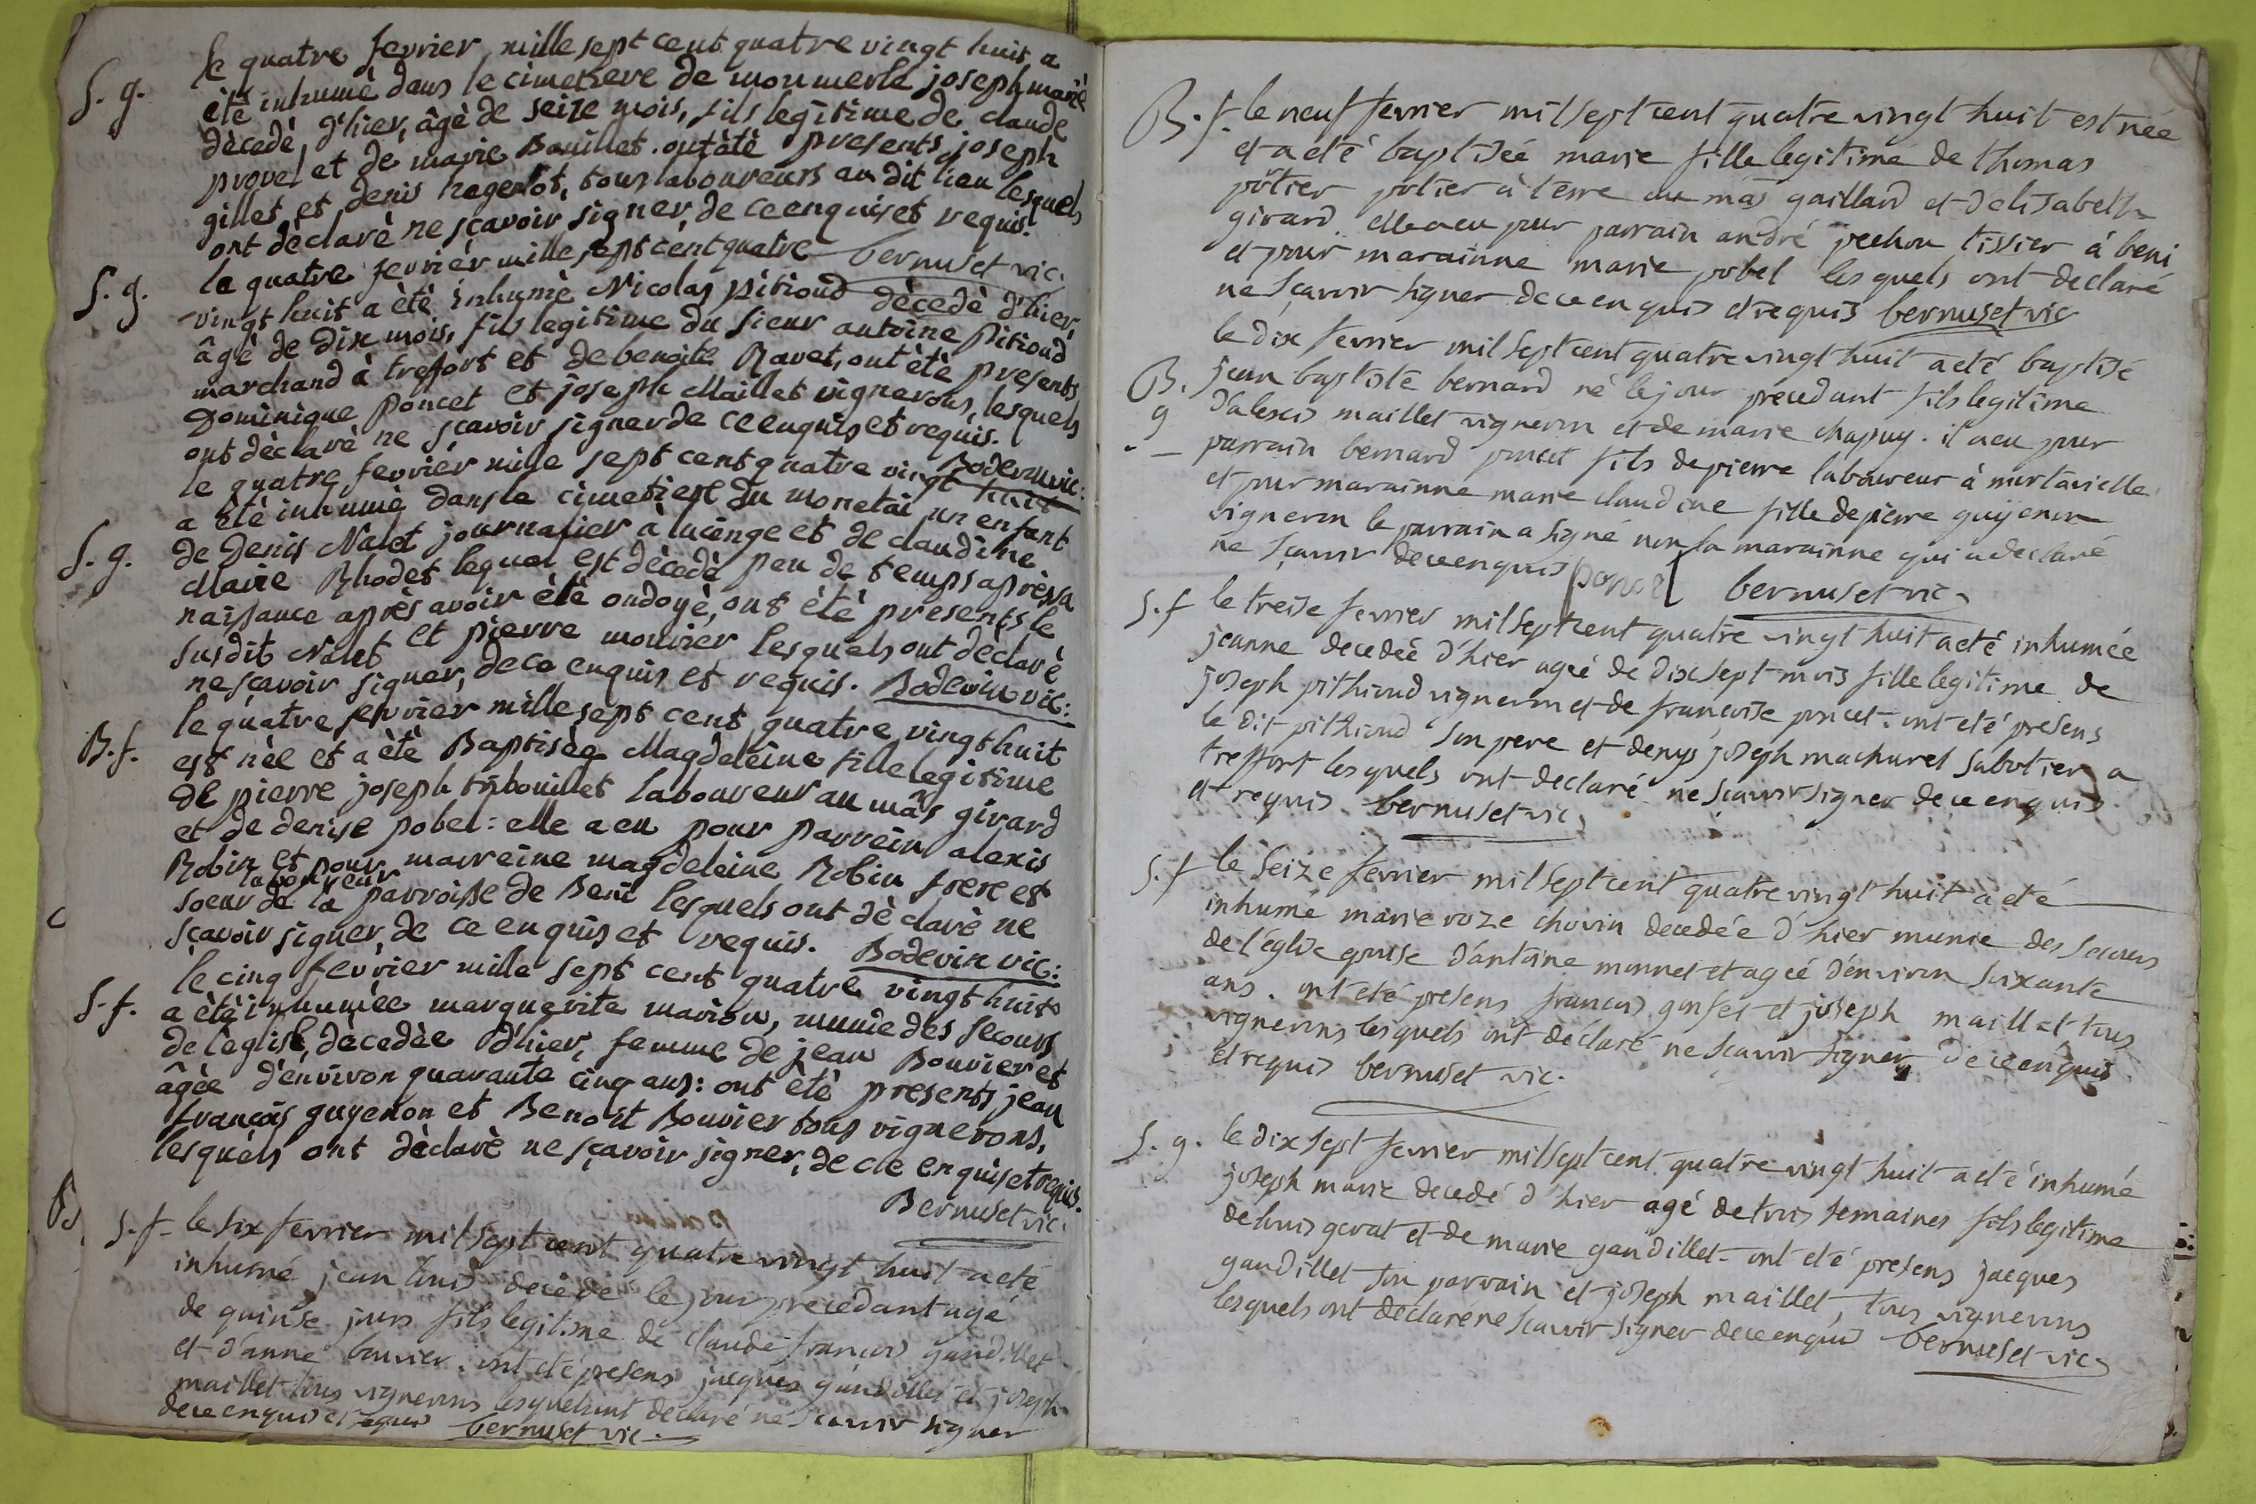 S. g.
le quatre fevrier mille sept cent quatre vingt huit a
ètè inhumè dans le cimetiere de monmerle joseph marie
dècedè d'hier, âgè de seize mois, fils legitime de claude
provel et de marie Bouillet. ont ètè presents joseph
gillet et denis hagenlot, tous laboureurs au dit lieu lesquels
ont dèclarè ne sçavoir signer, de ce enquis et requis.
bernuset vic.
S. g.
le quatre fevrier mille sept cent quatre
vingt huit a ètè inhumè Nicolas pitioud dècedè d'hier,
âgè de dix mois, fils legitime du sieur antoine Pitioud
marchand à treffort et de benoite Ravet, ont ètè presents
Dominique poncet et joseph Maillet vignerons, lesquels
ont dèclarè ne sçavoir signer de ce enquis et requis.
Bodevin vic:
le quatre fevrier mille sept cent quatre vingt huit
a ètè inhumè dans le cimetiere du monetai un enfant
S. g.
de Denis Nalet journalier à lucinge et de claudine
Marie Rhodet lequel est dècedè peu de temps après sa
naissance après avoir ètè ondoyè, ont ètè presents le
susdit Nalet et pierre mourier lesquels ont dèclarè
ne sçavoir signer, de ce enquis et requis. Bodevin vic:
B. f.
le quatre fevrier mille sept cent quatre vingt huit
est nèe et a ètè Baptisèe Magdeleine fille legitime
de pierre joseph tribouillet laboureur au mâs girard
et de denise pobel: elle a eu pour parrein alexis
Robin et pour marreine magdeleine Robin frere et
laboureur
soeur de la parroisse de Beni lesquels ont dèclarè ne
sçavoir signer, de ce enquis et requis. Bodevin vic:
S. f.
le cinq fevrier mille sept cent quatre vingt huit
a ètè inhumèe marguerite marion, munie des secours
de l'eglise, dècedèe d'hier, femme de jean Bouvier et
âgèe d'environ quarante cinq ans: ont ètè presents jean
françois guyenon et Benoit Bouvier tous vignerons,
lesquels ont dèclarè ne sçavoir signer, de ce enquis et requis.
Bernuset vic.
S. f. le six fevrier mil sept cent quatre vingt huit a eté
inhumé jean louis decedé le jour precedant agé
de quinse jours fils legitime de claude francois gandillet
et d'anne bouvier. ont eté presens jacques gandillet et joseph
maillet tous vignerons lesquels ont declaré ne scavoir signer
de ce enquis et requis bernuset vic.
B. f. le neuf fevrier mil sept cent quatre vingt huit est née
et a eté baptisée marie fille legitime de thomas
potier potier à terre au mas gaillard et d'elisabeth
girard. elle a eu pour parrain andré pechou tissier à beni
et pour marainne marie pobel lesquels ont declaré
ne scavoir signer de ce en quis et requis bernuset vic
B. g
le dix fevrier mil sept cent quatre vingt huit a eté baptisé
jean baptiste bernard né le jour precedant fils legitime
d'alexis maillet vigneron et de marie chapuy. il a eu pour
parrain bernard poncet fils de pierre laboureur à montavielle
et pour marainne marie claudine fille de pierre guyenon
vigneron le parrain a signé non la marainne qui a declaré
ne scavoir de ce enquis poncet bernuset vic
S. f le treise fevrier mil sept cent quatre vingt huit a eté inhumée
jeanne decedée d'hier agée de dix sept mois fille legitime de
joseph pithioud vigneron et de francoise poncet. ont eté presens
le dit pithioud son pere et denys joseph machuret sabotier a
treffort lesquels ont declaré ne scavoir signer de ce enquis
et requis bernuset vic
S. f le seize fevrier mil sept cent quatre vingt huit a eté
inhumé marie roze chovin decedée d'hier munie des secours
de l'eglise epouse d'antoine monnet et agée d'environ soixante
ans. ont eté presens francois gonset et joseph maillet tous
vignerons lesquels ont declaré ne scavoir signer de ce enquis
et requis bernuset vic.
S. g. le dix sept fevrier mil sept cent quatre vingt huit a eté inhumé
joseph marie decedé d'hier agé de trois semaines fils legitime
de louis gerat et de marie gandillet ont eté presens jacques
gandillet son parrain et joseph maillet, tous vignerons
lesquels ont declaré ne scavoir signer de ce enquis bernuset vic